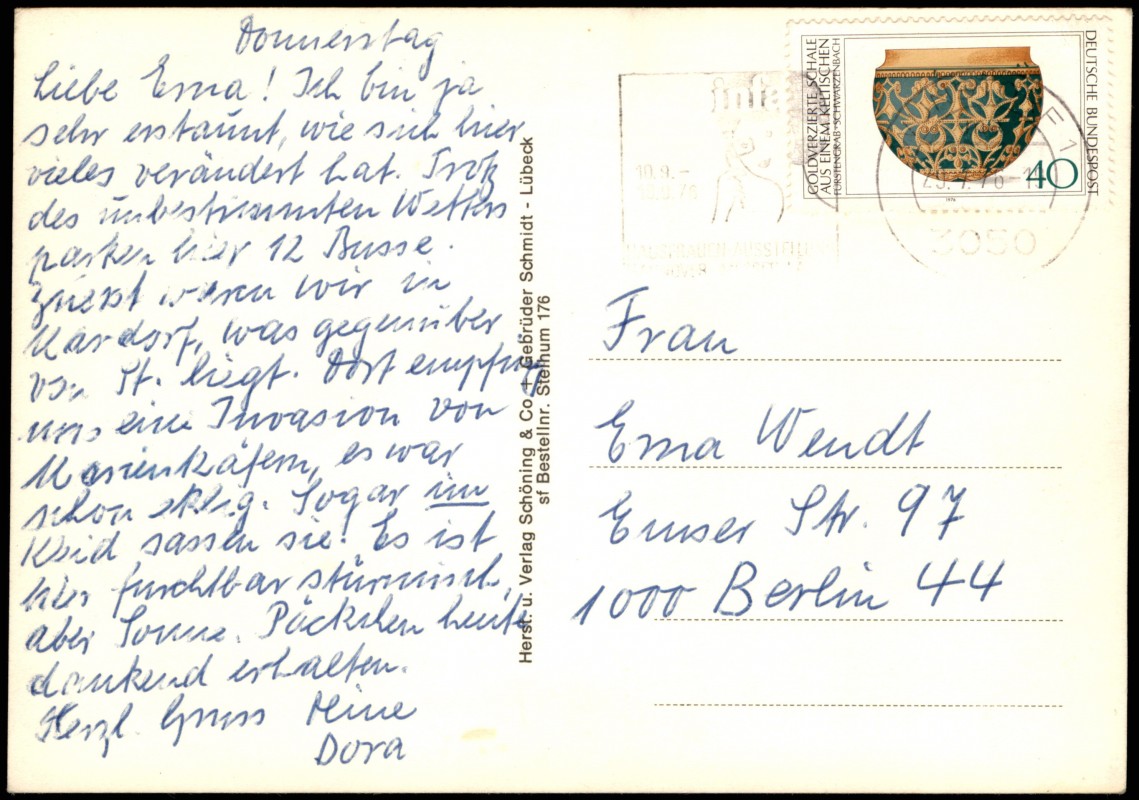 Donnerstag
Liebe Erna! Ich bin ja
sehr erstaunt, wie sich hier
vieles verändert hat. Trotz
des unbestimmten Wetters
parken hier 12 Busse.
Zuerst waren wir in
Mardorf, was gegenüber
von St. liegt. Dort empfing
uns eine Invasion von
Marienkäfern, es war
schon eklig. Sogar im
Kleid sassen sie. Es ist
hier furchtbar stürmisch,
aber Sonne. Päckchen heute
dankend erhalten.
Herzl. Gruss Deine
Dora
Herst. u. Verlag Schöning & Co + Gebrüder Schmidt - Lübeck
sf Bestellnr. Steihum 176
10.9.–
DEUTSCHE BUNDESPOST
GOLDVERZIERTE SCHALE
AUS EINEM KELTISCHEN
FÜRSTENGRAB · SCHWARZENBACH
40
1976
3050
Frau
Erna Wendt
Emser Str. 97
1000 Berlin 44